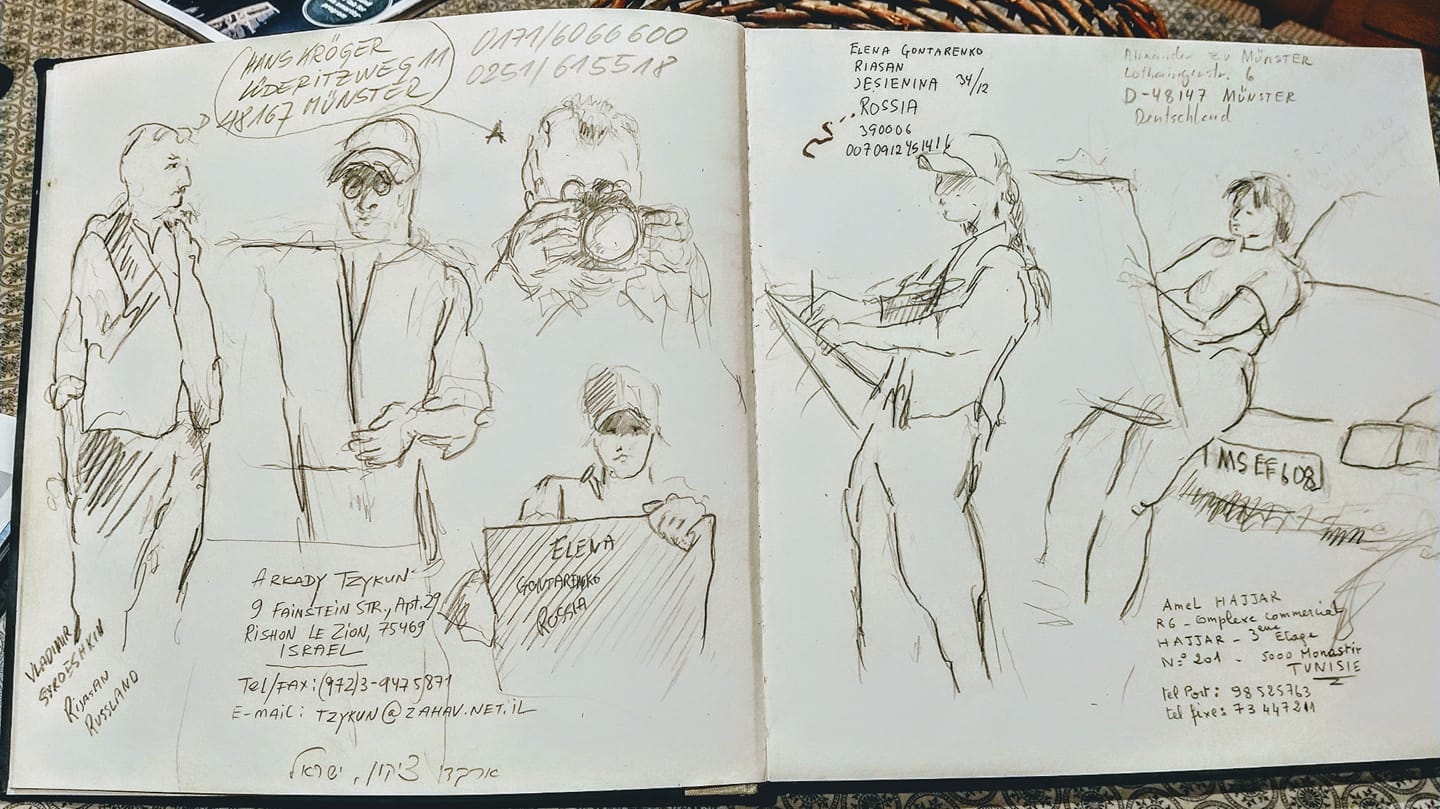 HANS KRÖGER
LÜDERITZWEG 11
48167 MÜNSTER
0171/6066600
0251/615518
ELENA
GONTARENKO
ROSSIA
VLADIMIR
SYROESHKIN
RIJASAN
RUSSLAND
ARKADY TZYKUN
9 FAINSTEIN STR., Apt. 29
RISHON LE ZION, 75469
ISRAEL
Tel/FAX: (972)3-9475871
E-MAIL: TZYKUN@ZAHAV.NET.IL
ארקדי ציקון, ישראל
ELENA GONTARENKO
RIASAN
JESIENINA 34/12
ROSSIA
390006
0070912451416
Alexander ZU MÜNSTER
Lothringerstr. 6
D-48147 MÜNSTER
Deutschland
MS EF 608
Amel HAJJAR
R6 - Complexe commercial
HAJJAR - 3eme Etage
N° 201 - 5000 Monastir
TUNISIE
tel Port: 98525763
tel fixe: 73 447211